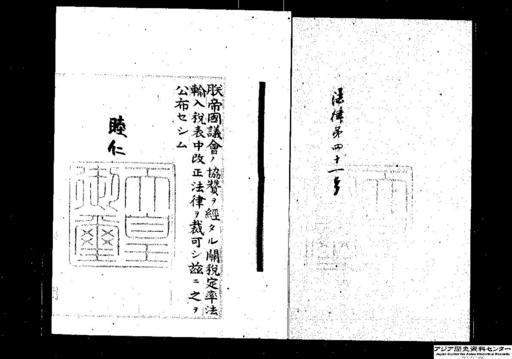 法律第四十一号
朕帝國議會ノ協賛ヲ經タル關税定率法
輸入税表中改正法律ヲ裁可シ茲ニ之ヲ
公布セシム
睦仁
天皇
御璽
アジア歴史資料センター
Japan Center for Asian Historical Records